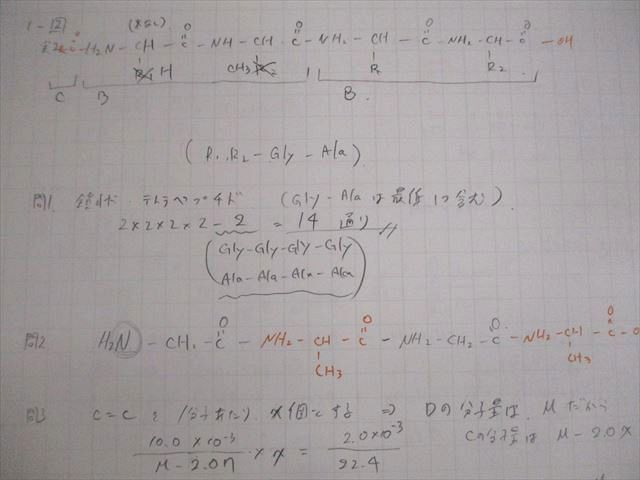 H₂N - CH - C - NH - CH - C - NH₂ - CH - C - NH₂ - CH - C - OH
O O O O
H CH₃ R R₂
C B B.
(R₁, R₂ - Gly - Ala)
問1. 鎖状 テトラペプチド (Gly - Ala は最低1つ含む)
2×2×2×2 - 2 = 14 通り
Gly-Gly-Gly-Gly
Ala-Ala-Ala-Ala
問2 H₂N - CH₂ - C - NH₂ - CH - C - NH₂ - CH₂ - C - NH₂ - CH - C - O
O O O O
CH₃ CH₃
問3 C=C を 1分子あたり x個とする ⇒ Dの分子量は, M だから
Cの分子量は M - 2.0x
10.0×10⁻³ / M - 2.0n × x = 2.0×10⁻³ / 22.4